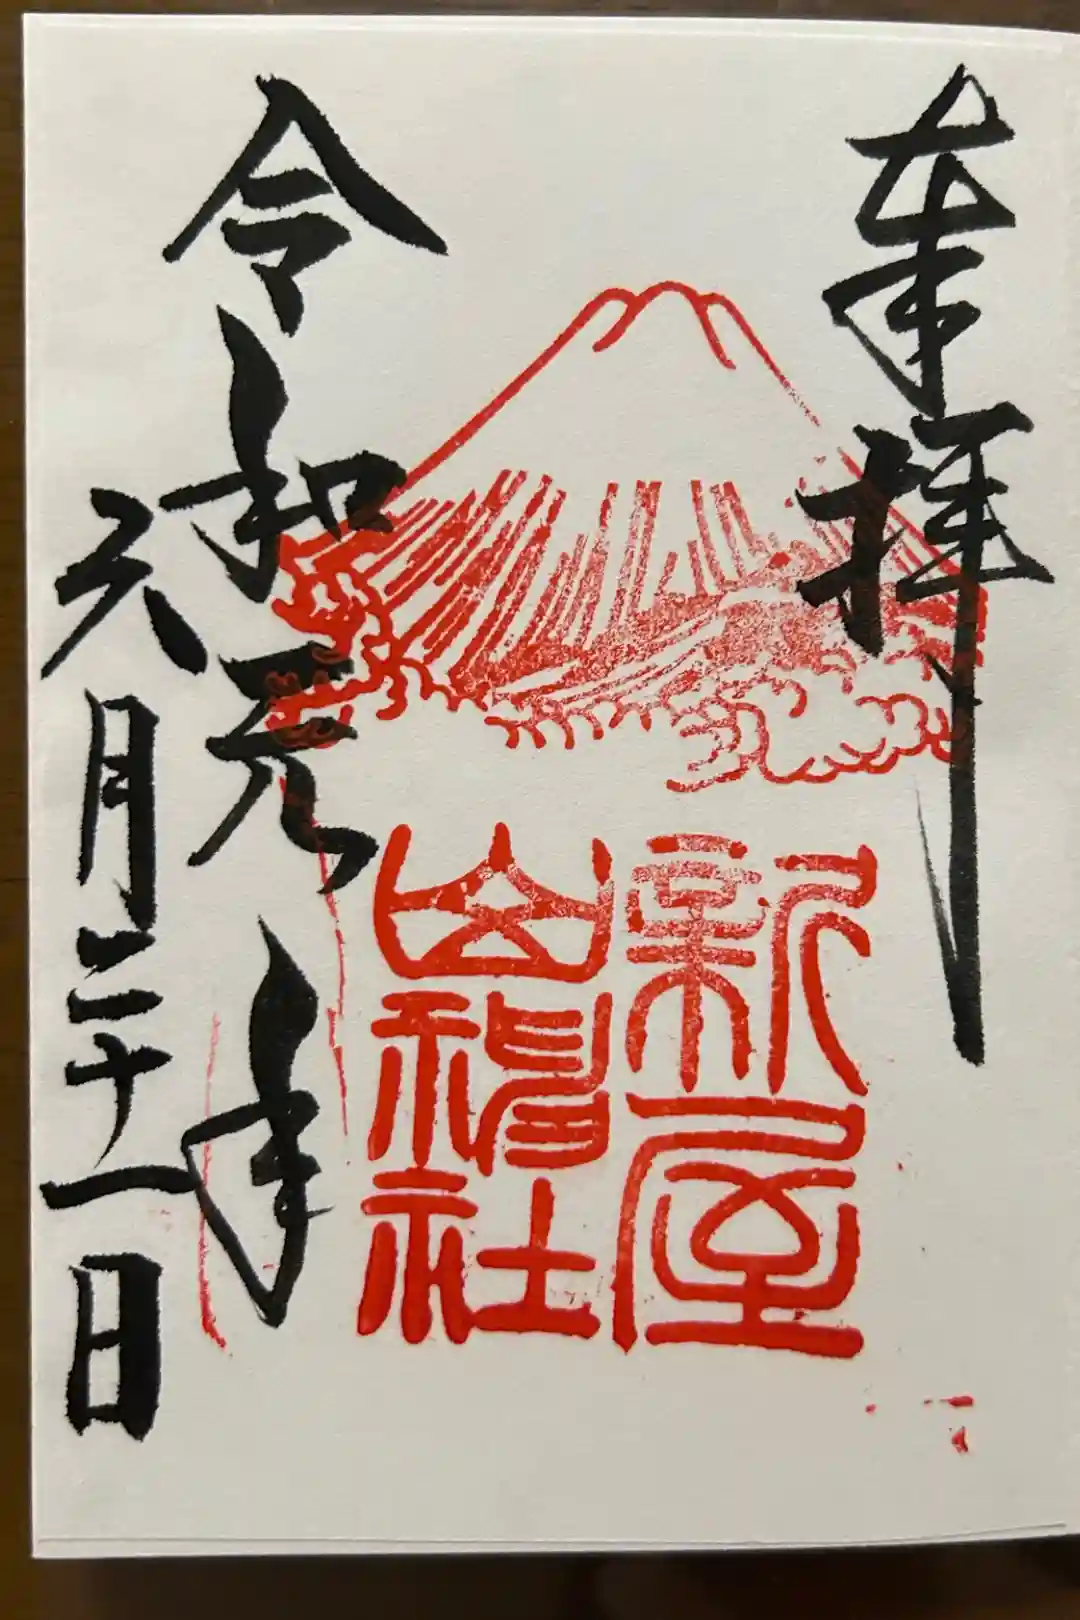 奉拝
新屋
山神社
令和元年
六月二十一日